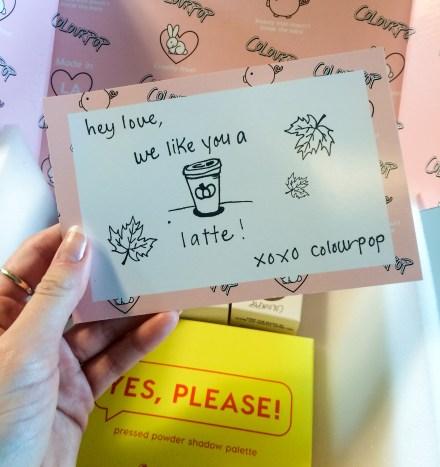 COLOURPOP
COLOURPOP
Made in
L.A.
hey love,
we like you a
latte!
xoxo colourpop
YES, PLEASE!
pressed powder shadow palette